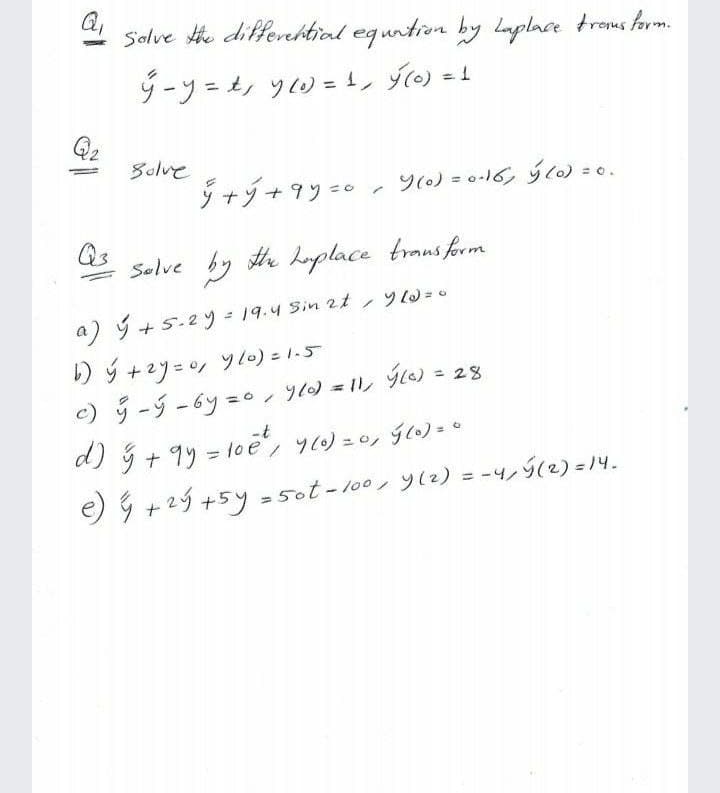 Q1 Solve the differehtial equation by Laplace transform.
y″ - y = t, y(0) = 1, y′(0) = 1
Q2 Solve
y″ + y′ + 9y = 0, y(0) = 0.16, y′(0) = 0.
Q3 Solve by the Laplace transform
a) y′ + 5.2y = 19.4 Sin 2t, y(0) = 0
b) y′ + 2y = 0, y(0) = 1.5
c) y″ - y′ - 6y = 0, y(0) = 11, y′(0) = 28
d) y″ + 9y = 10e^-t, y(0) = 0, y′(0) = 0
e) y″ + 2y′ + 5y = 50t - 100, y(2) = -4, y′(2) = 14.